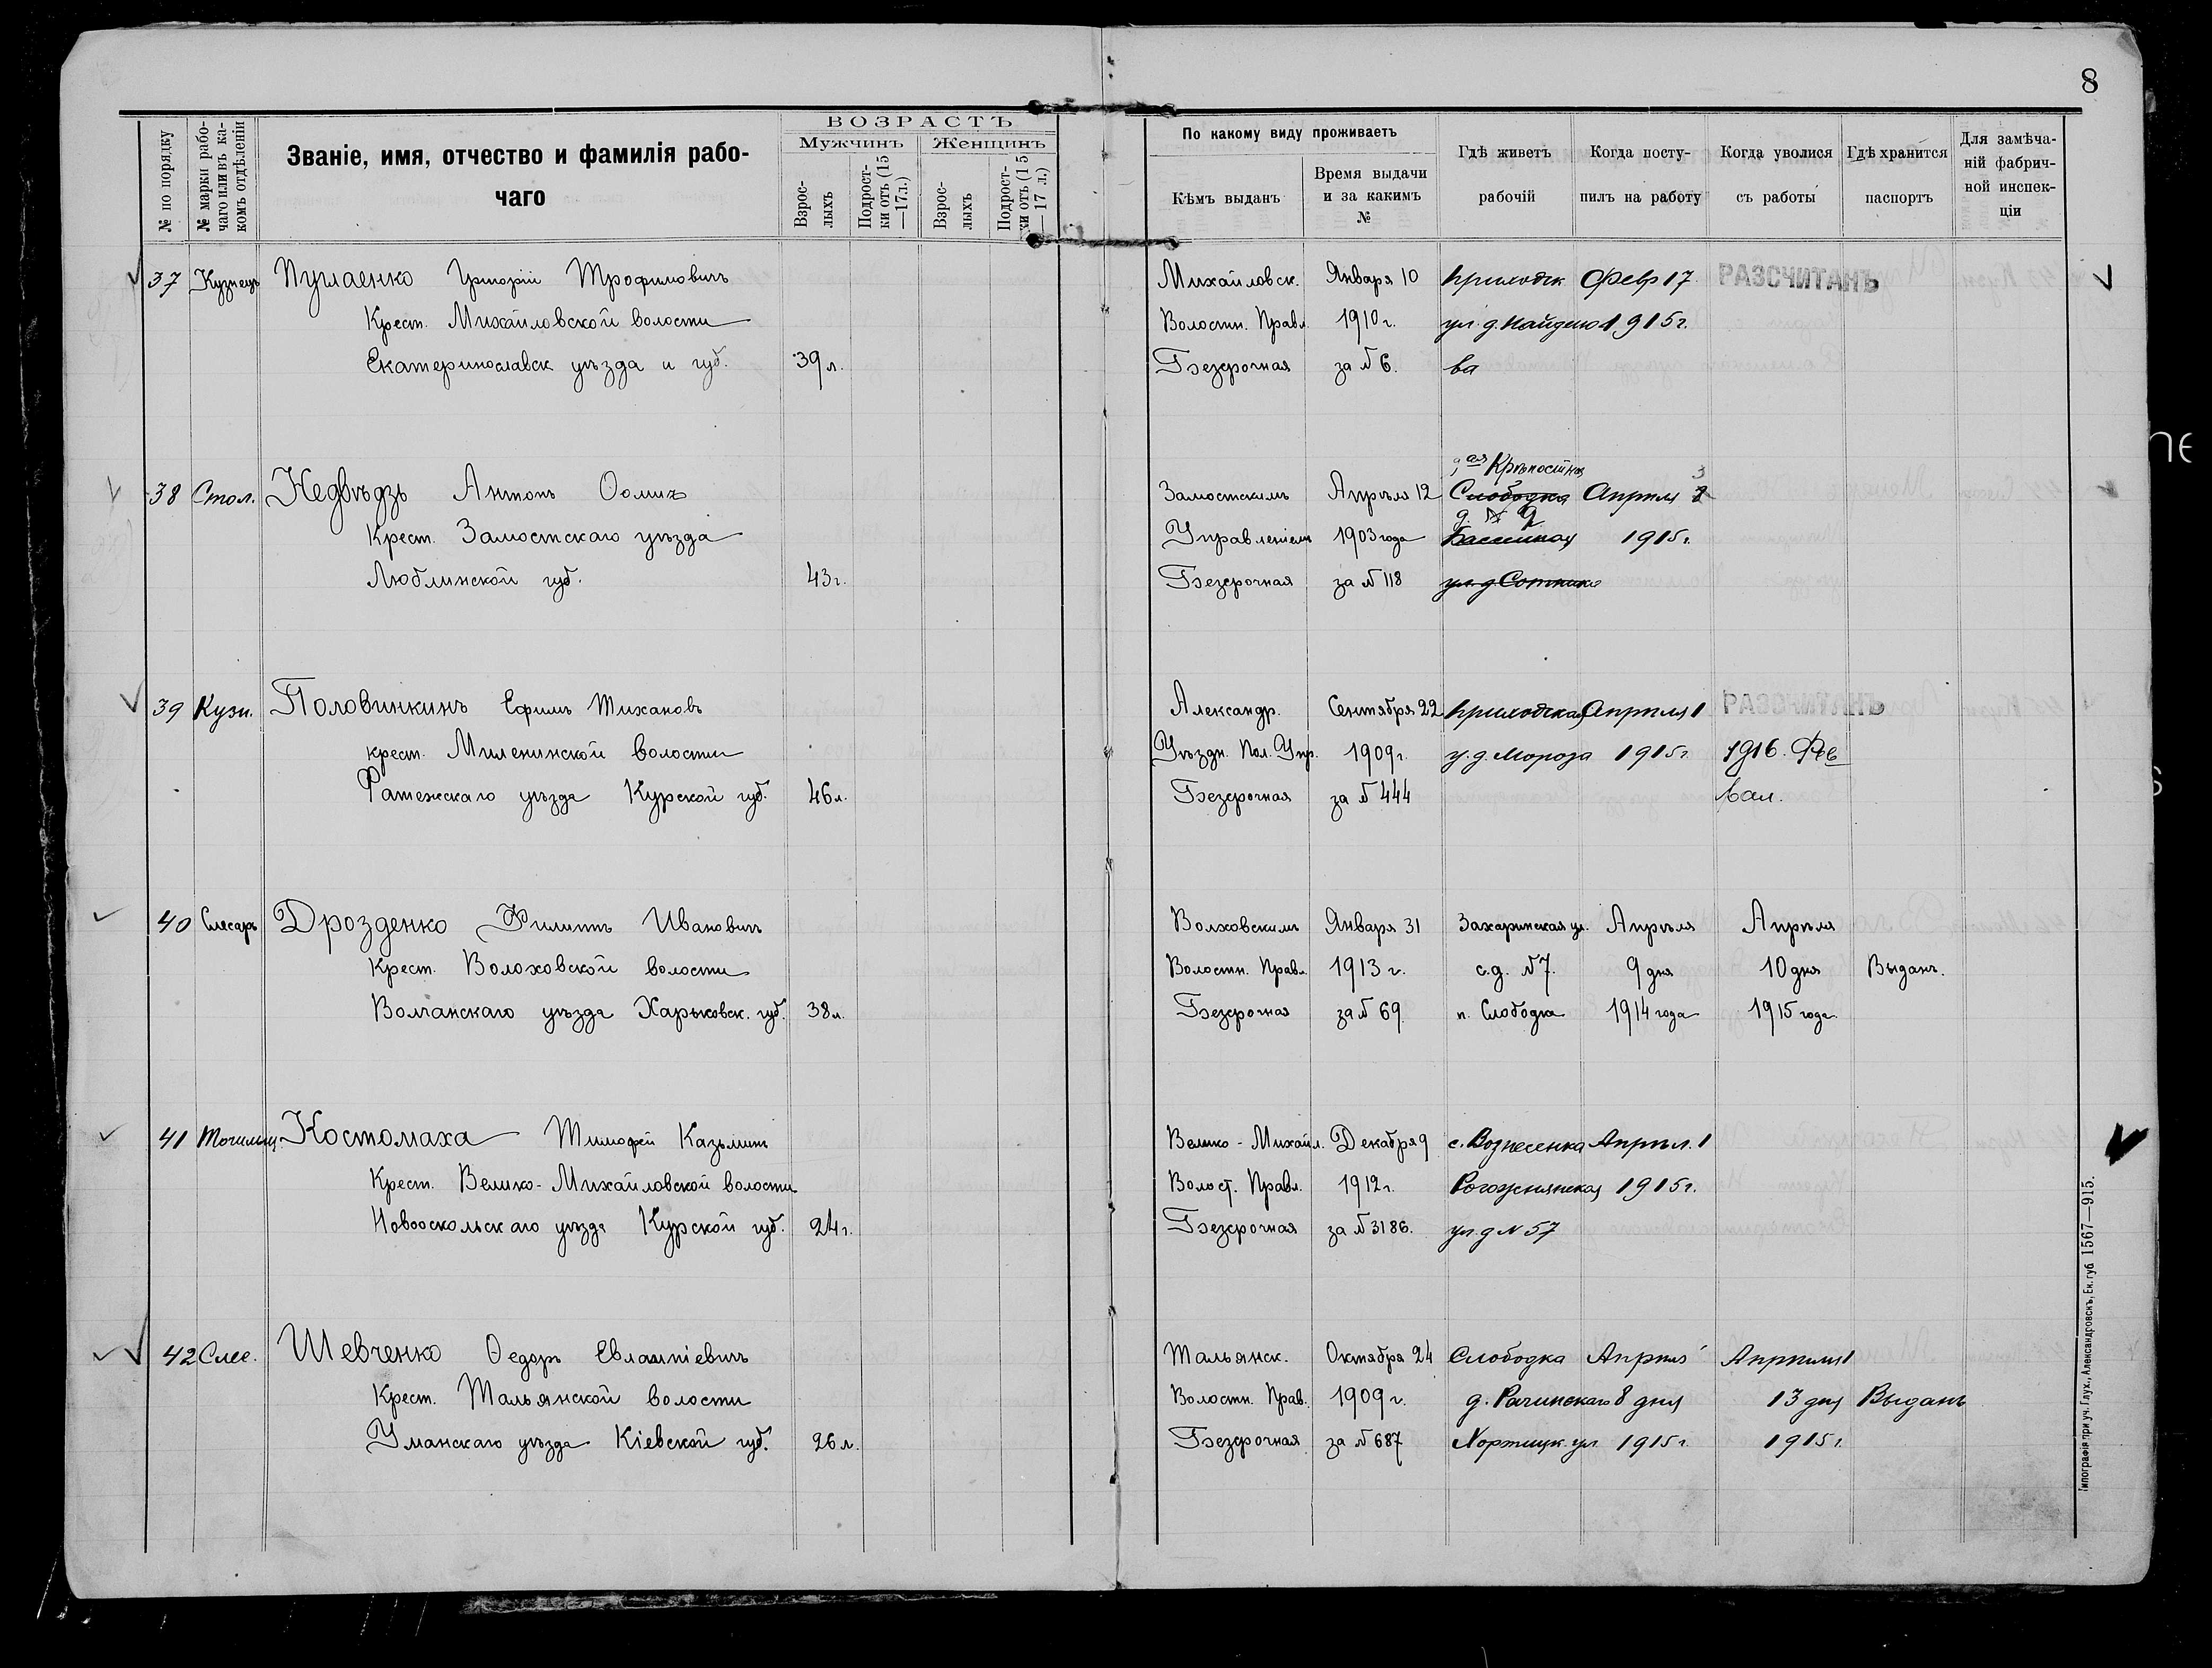 8
№ по порядку
№ марки рабо-
чаго или въ ка-
комъ отдѣленіи
Званіе, имя, отчество и фамилія рабо-
чаго
ВОЗРАСТЪ
Мужчинъ
Женщинъ
Взрос-
лыхъ
Подрост-
ки отъ (15
—17.л.)
Взрос-
лыхъ
Подрост-
ки отъ (15
—17 л.)
По какому виду проживаетъ
Кѣмъ выданъ
Время выдачи
и за какимъ
№
Гдѣ живетъ
рабочій
Когда посту-
пилъ на работу
Когда уволися
съ работы
Гдѣ хранится
паспортъ
Для замѣча-
ній фабрич-
ной инспек-
ціи
37 Кузнецъ Пуглаенко Григорій Трофимовичъ Михайловск. Января 10 Приходск Февр 17 РАЗСЧИТАНЪ
Крест. Михайловской волости Волостн. Правл. 1910 г. ул. д. Найдено 1915 г.
Екатеринославск уѣзда и губ. 39 л. Безсрочная за № 6. ва
Крѣпостная
38 Стол. Недвѣдзь Антонъ Ѳомичъ Замостскимъ Апрѣля 12 Слободка Апрѣля 3
Крест. Замостскаго уѣзда Управленіемъ 1903 года 1915 г.
Люблинской губ. 43 г. Безсрочная за № 118 ул. д. Сотника
39 Кузн. Половинкинъ Ефимъ Тихановъ Александр. Сентября 22 Приходская Апрѣля 1 РАЗСЧИТАНЪ
крест. Миленинской волости Уѣздн. Пол. Упр. 1909 г. у. д. Мороза 1915 г. 1916. Фев
Фатежскаго уѣзда Курской губ. 46 л. Безсрочная за № 444
40 Слесарь Дрозденко Филиппъ Ивановичъ Волховскимъ Января 31 Захаринская ул. Апрѣля Апрѣля
Крест. Волоховской волости Волостн. Правл. 1913 г. с.д. № 7. 9 дня 10 дня Выданъ.
Волчанскаго уѣзда Харьковск. губ. 38 л. Безсрочная за № 69 п. Слободка 1914 года 1915 года
41 Точильщ. Костомаха Тимофей Казьминъ Велико-Михайл. Декабря 9 с. Вознесенка Апрѣл. 1
Крест. Велико-Михайловской волости Волост. Правл. 1912 г. 1915 г.
Новооскольскаго уѣзда Курской губ. 24 г. Безсрочная за № 3186. ул д № 57
42 Слес. Шевченко Ѳедоръ Евлампіевичъ Тальянск. Октября 24 Слободка Апрѣля Апрѣля
Крест. Тальянской волости Волостн. Прав. 1909 г. д. Рачинскаго 8 дня 13 дня Выданъ
Уманскаго уѣзда Кіевской губ. 26 л. Безсрочная за № 687 Хортицк ул 1915 г. 1915 г.
Типографія три уч. Глух., Александровскъ, Ек. губ. 1567—915.